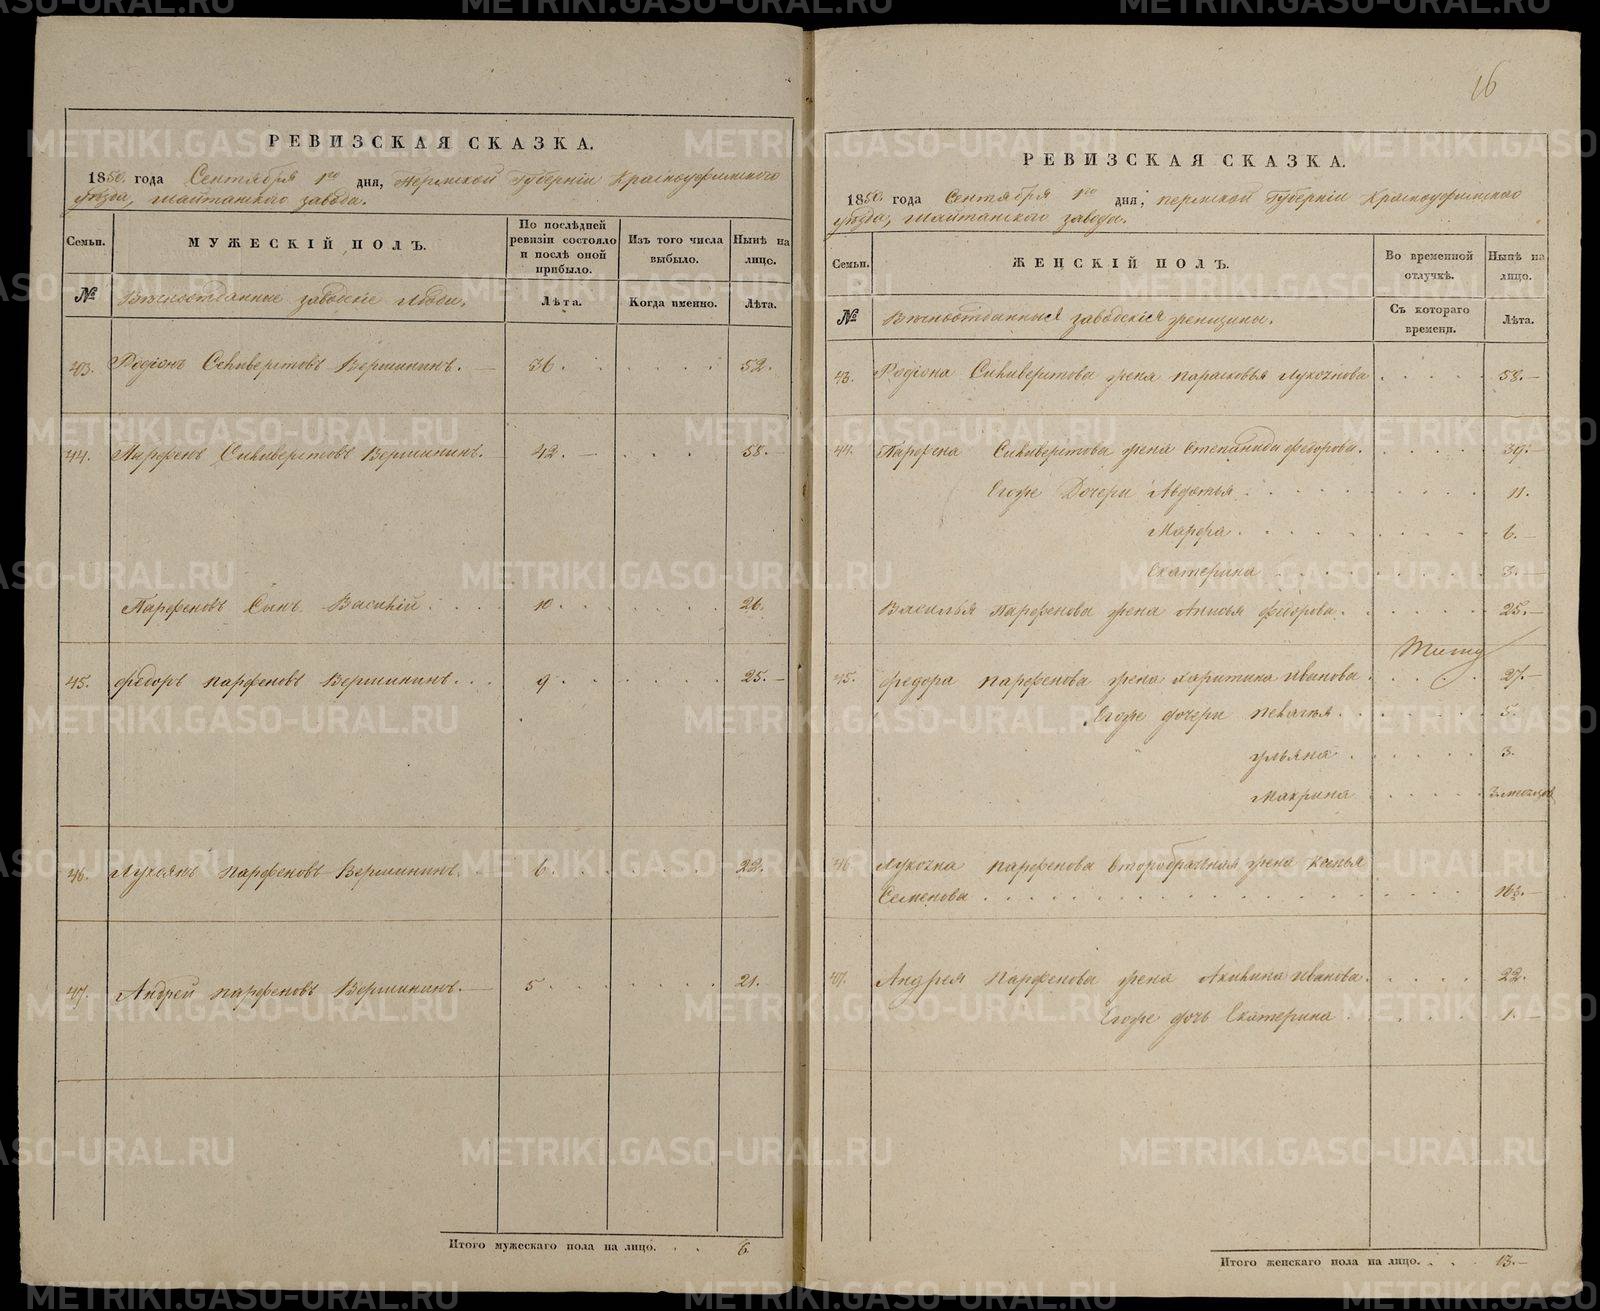 16
РЕВИЗСКАЯ СКАЗКА.
1850. года Сентября 1го дня, Пермской Губернiи Красноуфимского
уѣзда, Шайтанского завода.
Семьи.
МУЖЕСКIЙ ПОЛЪ.
По послѣдней
ревизiи состояло
и послѣ оной
прибыло.
Изъ того числа
выбыло.
Нынѣ на
лицо.
№
Вѣчноотданные заводскiе люди.
Лѣта.
Когда именно.
Лѣта.
43. Родiонъ Селиверстовъ Вершининъ. 36. 52.
44. Парфенъ Силиверстовъ Вершининъ. 42. 58.
Парфеновъ Сынъ Василiй 10. 26.
45. Федоръ Парфеновъ Вершининъ. 9. 25.
46. Лукоянъ Парфеновъ Вершининъ. 6. 22.
47. Андрей Парфеновъ Вершининъ. 5. 21.
Итого мужескаго пола на лицо. 6.
РЕВИЗСКАЯ СКАЗКА.
1850. года Сентября 1го дня, Пермской Губернiи Красноуфимского
уѣзда, Шайтанского завода.
Семьи.
ЖЕНСКIЙ ПОЛЪ.
Во временной
отлучкѣ.
Нынѣ на
лицо.
№
Вѣчноотданныя заводскiя женщины.
Съ котораго
времени.
Лѣта.
43. Родiона Силиверстова жена Парасковья Лукоянова 58.
44. Парфена Силиверстова жена Степанида Федорова. 39.
Егоже Дочери Авдотья 11.
Марфа 6.
Екатерина 3.
Василья Парфенова жена Анисья Федорова 25.
45. Федора Парфенова жена Харитина Иванова 27.
Егоже дочери Пелагея 5.
Ульяна 3.
Макрина 3 месецов
46. Лукояна Парфенова второбрачная жена Ксенья
Семенова
47. Андрея Парфенова жена Акилина Иванова 22.
Егоже дочь Екатерина 1.
Итого женскаго пола на лицо. 13.
METRIKI.GASO-URAL.RU